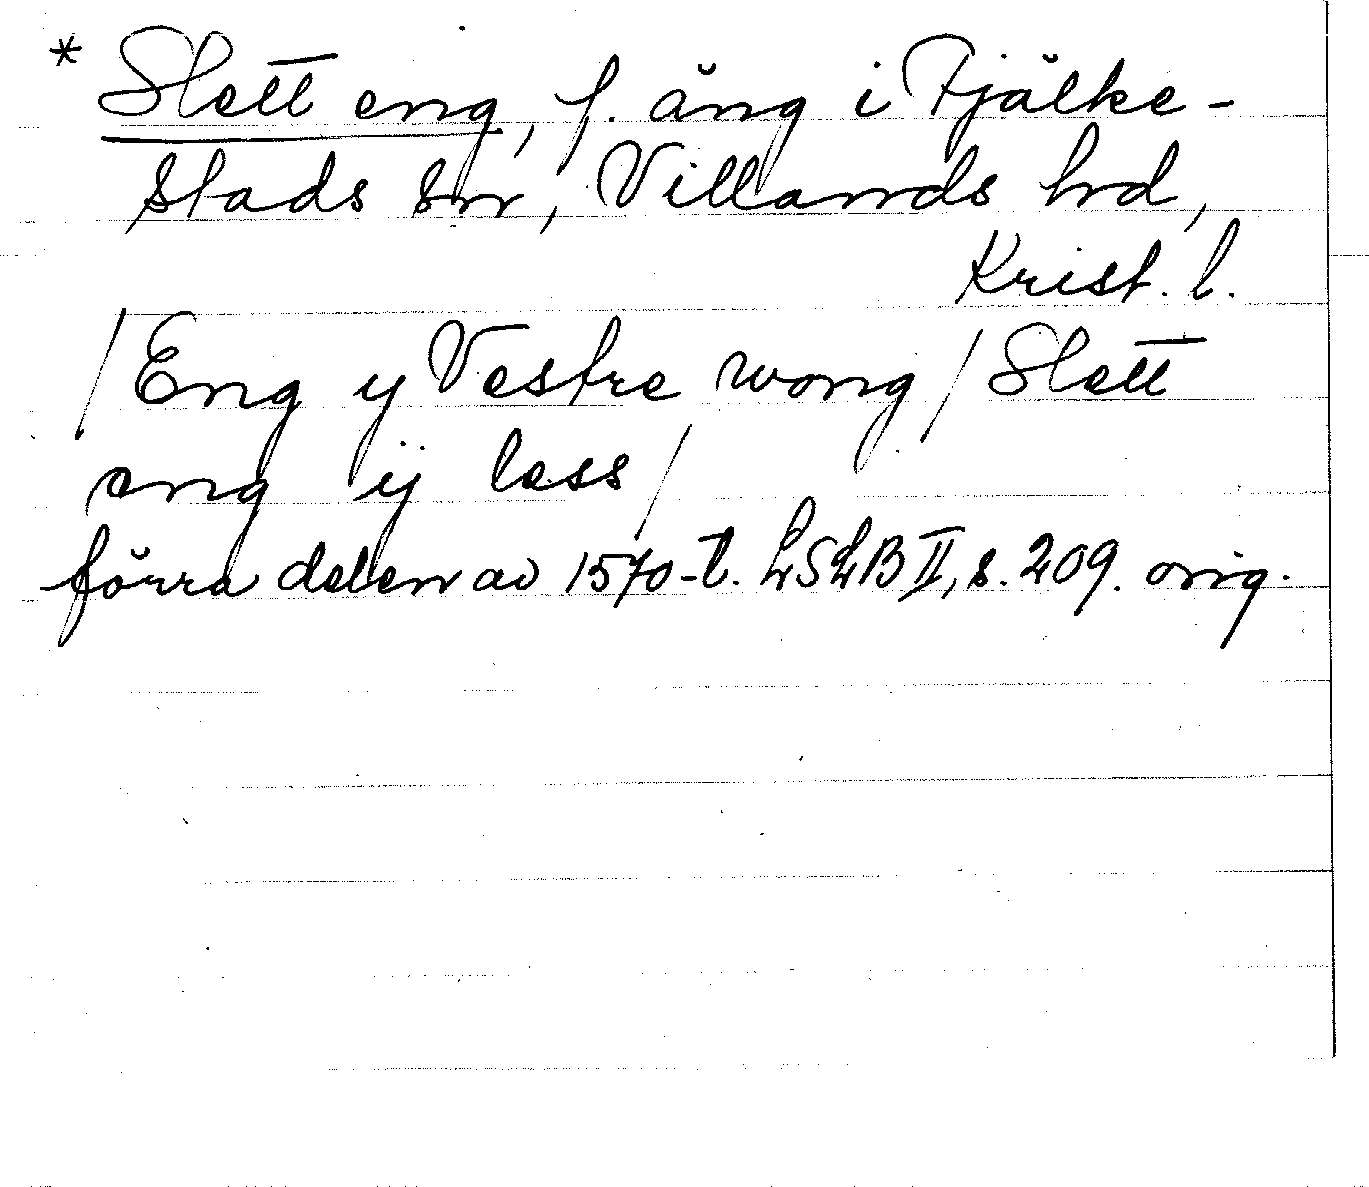 * Slett eng, f. äng i Fjälke-
stads sn, Villands hrd,
Krist. l.
/ Eng y Vestre wong / Slett
eng ij less /
förra delen av 1570-t. LSLB II, s. 209. orig.